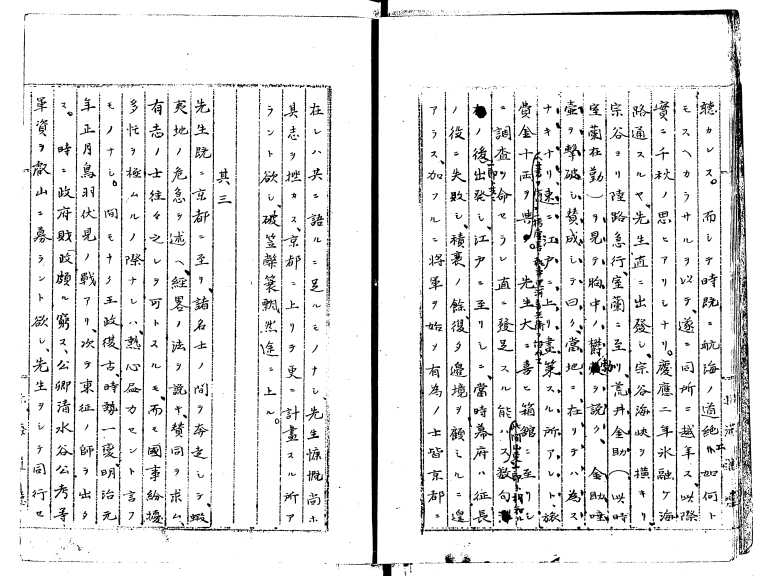 聴カレス。而シテ時既ニ航海ノ道絶エ如何ト
モスヘカラサルヲ以テ、遂ニ同所ニ越年ス、以際
實ニ千秋ノ思ヒアリシナリ。慶應二年氷融ケ海
路通スルヤ、先生直ニ出發シ、宗谷海峡ヲ横キリ
宗谷ヨリ陸路急行、室蘭ニ至リ、荒井金助（以時
室蘭在勤）ヲ見テ胸中ノ欝勃ヲ説ク、金助唾
壺ヲ撃破シ賛成シテ曰ク、當地ニ在リテハ為ス
ナキナリ、速ニ江戸ニ上リ畫策スル所アレト、旅
費金十両ヲ與フ。先生大ニ喜ヒ箱館ニ至リシ
ニ調査ヲ命セラレ直ニ發足スル能ハス、数旬
ノ後出發シ、江戸ニ至リシニ、當時幕府ハ征長
ノ役ニ失敗シ、積衰ノ餘復タ邊境ヲ顧ミルニ遑
アラス、加フルニ将軍ヲ始メ有為ノ士皆京都ニ
在レハ共ニ語ルニ足ルモノナシ、先生慷慨尚ホ
其志ヲ挫カス、京都ニ上リテ更ニ計畫スル所ア
ラント欲シ、破笠弊簑飄然途ニ上ル。
其三
先生既ニ京都ニ至リ、諸名士ノ間ヲ奔走シテ、蝦
夷地ノ危急ヲ述ヘ、經畧ノ法ヲ説キ、賛同ヲ求ム
有志ノ士往々之レヲ可トスルモ、而モ國事紛擾
多忙ヲ極ムルノ際ナレハ、熱心盡力セント言フ
モノナシ。間モナク王政復古、時勢一變、明治元
年正月鳥羽伏見ノ戰アリ、次テ東征ノ師ヲ出タ
ス。時ニ政府財政頗ル窮ス、公卿清水谷公考等
軍資ヲ叡山ニ募ラント欲シ、先生ヲシテ同行セ